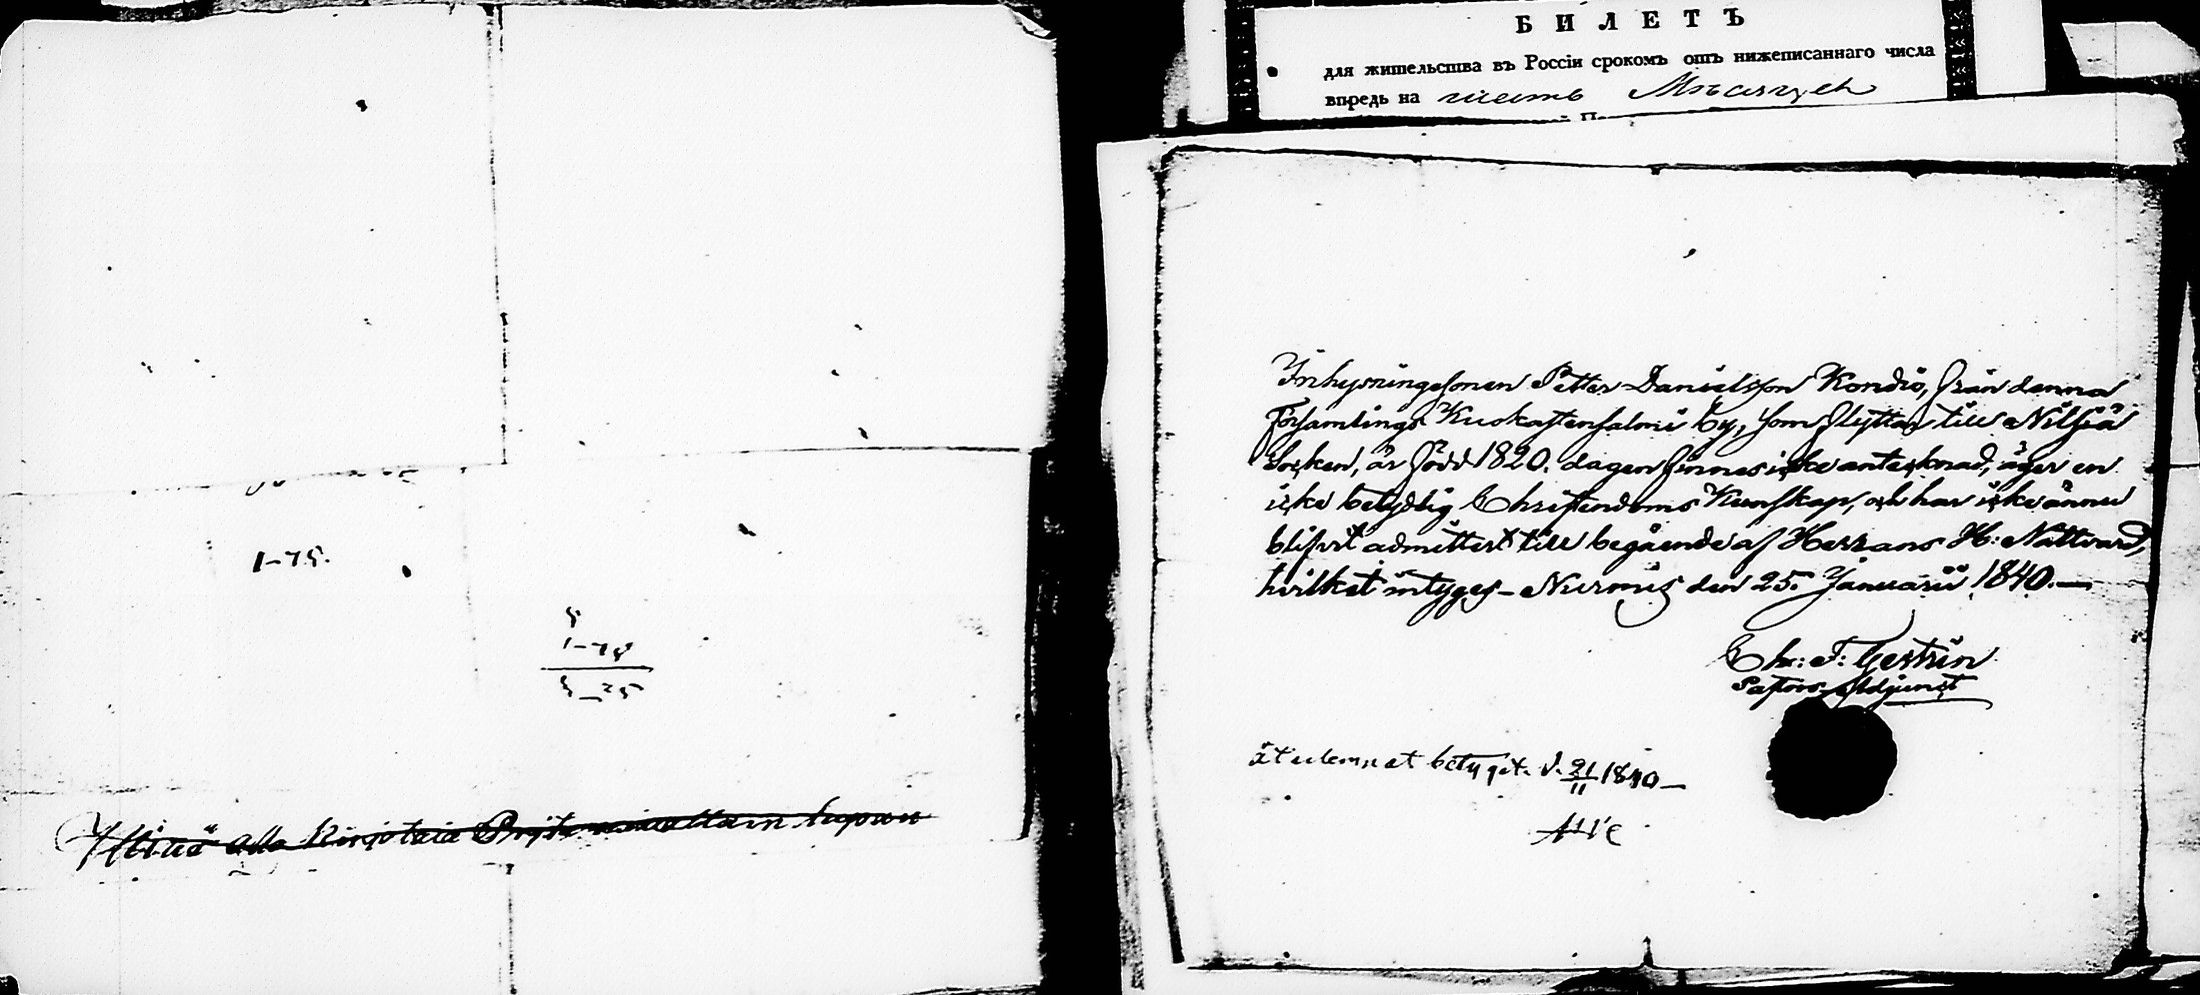 1-75.
5
1-75
3-25
Б И Л Е Т Ъ
для жительства въ Россіи срокомъ отъ нижеписаннаго числа
впредь на шесть Мѣсяцев
Inhysningesonen Petter Danielsson Kondio, från denna
Församlings Kuokastensalmi by, som flyttar till Nilsiä
Socken, är född 1820. dagen finnes icke antecknad, äger en
icke betydlig Christendoms Kunskap, och har icke ännu
blifvit admitterat till begående af Herrans H: Nattvard,
hvilket intyges - Nurmis den 25. Januarii 1840.—
Chr: F: Gestrin
Pastors Adjunct
betyget. d. 21/11 1840—